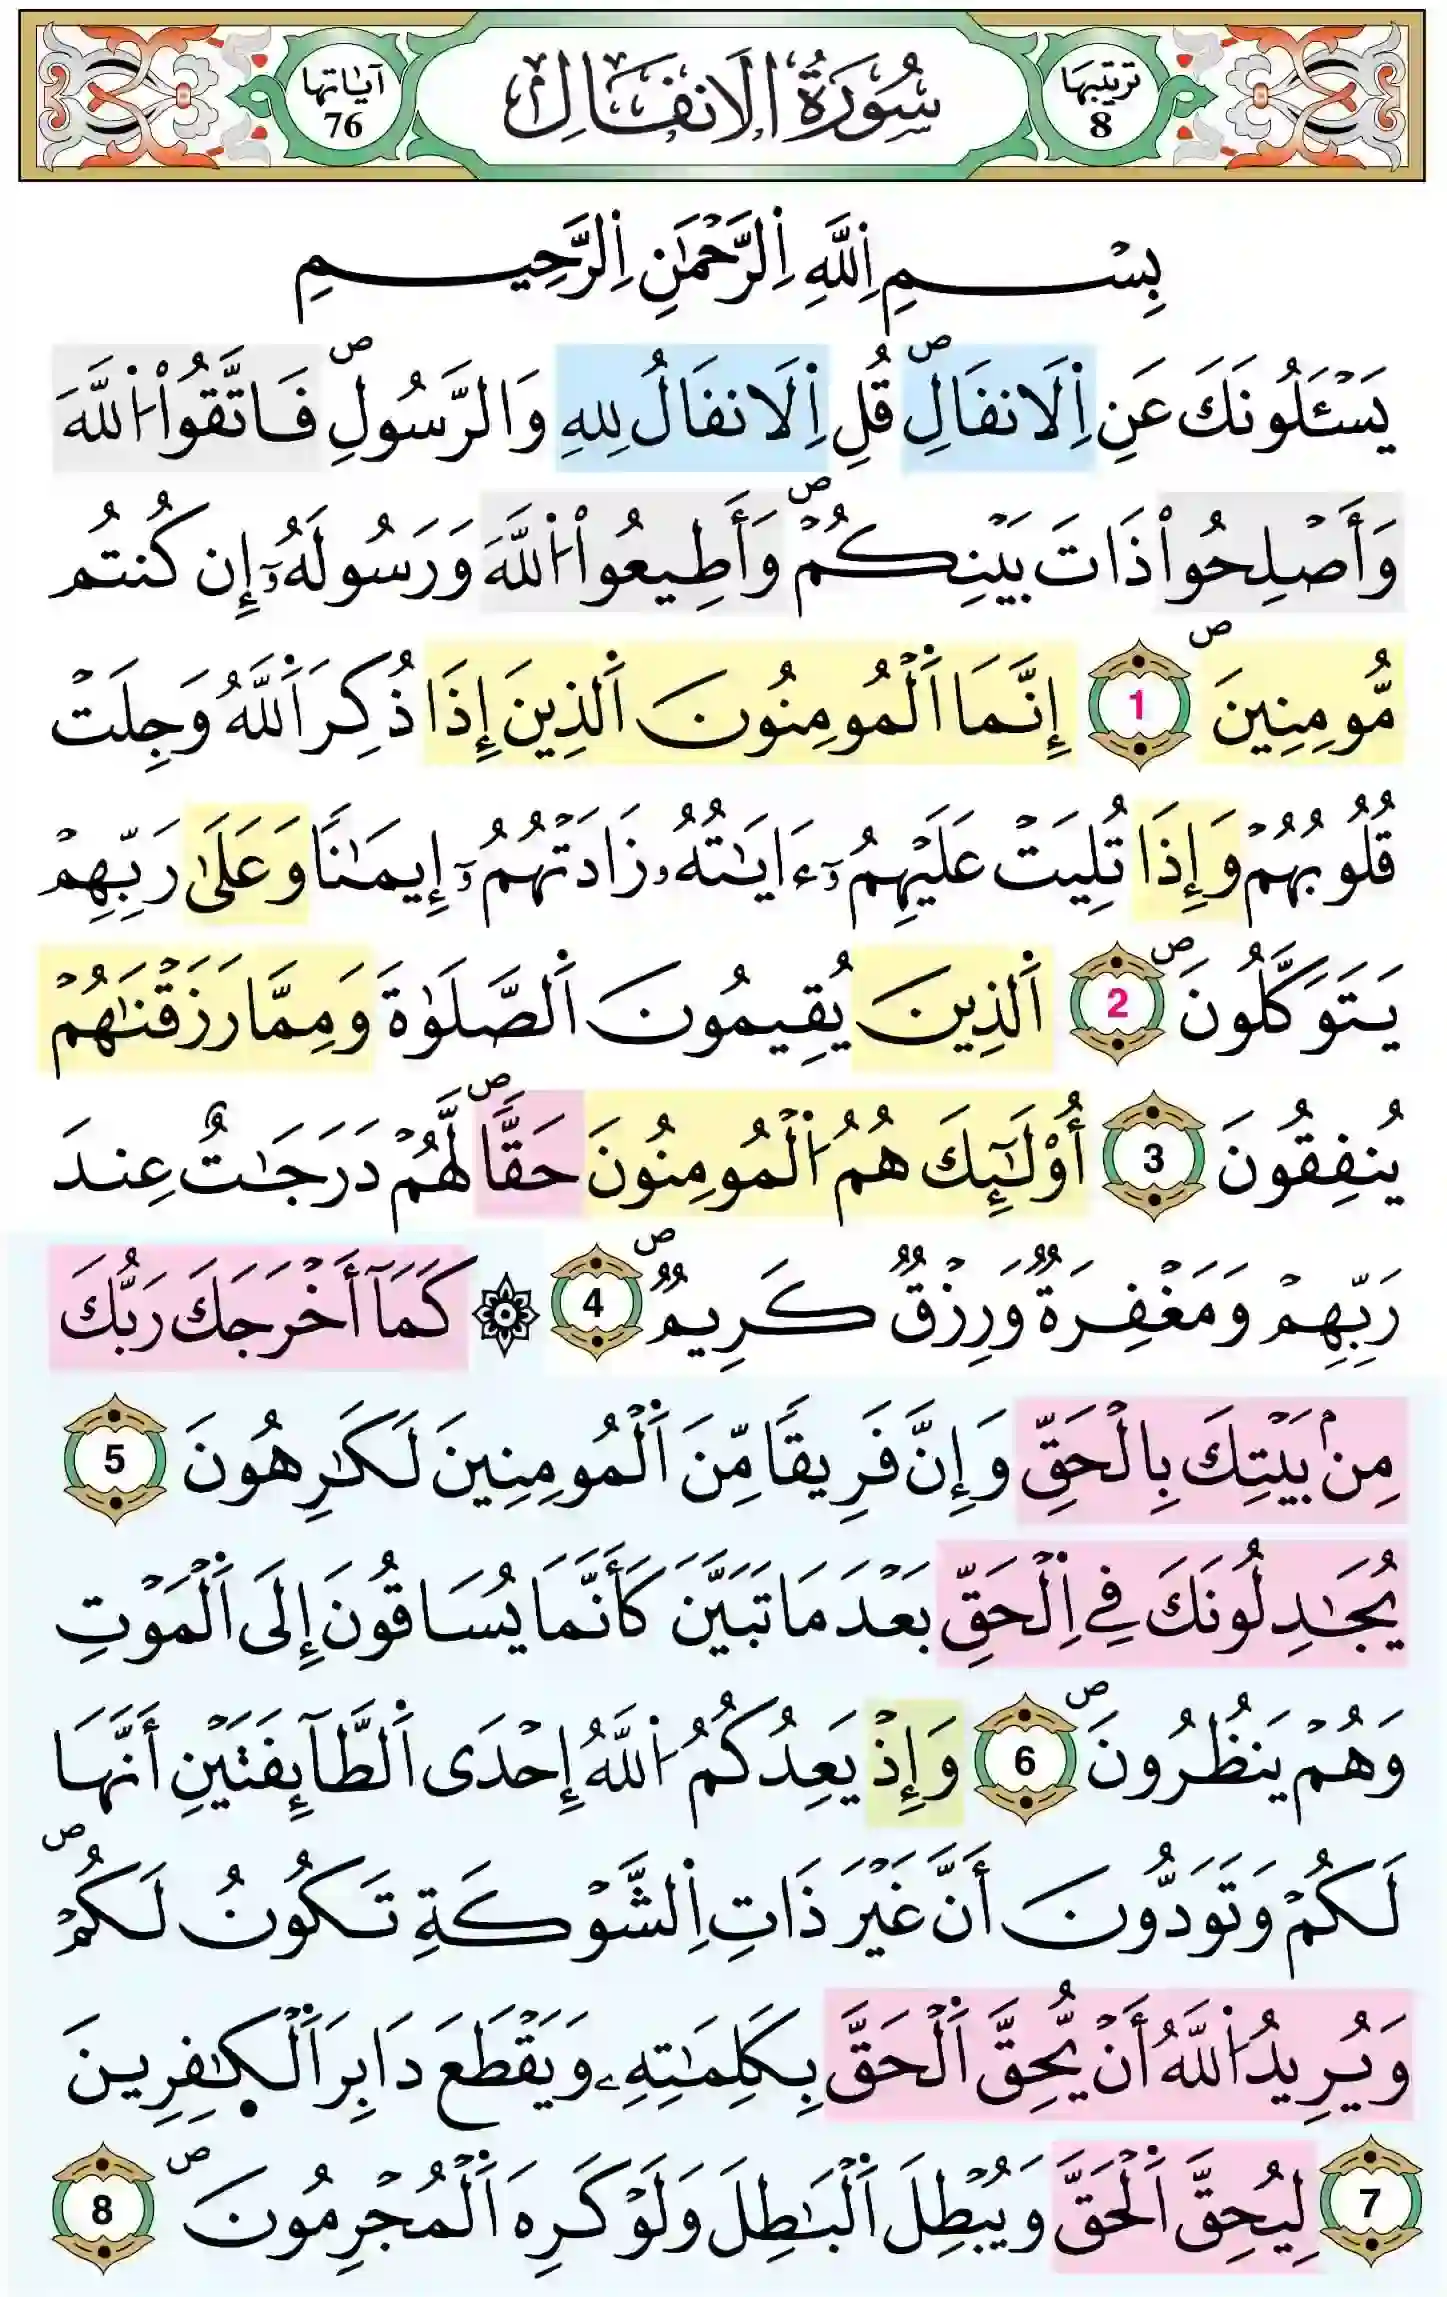 ترتيبها 8
سُورَةُ الَانفَالِ
آيَاتها 76
بِسْمِ اِللَّهِ اِلرَّحْمَٰنِ اِلرَّحِيمِ
يَسْـَٔلُونَكَ عَنِ اِلَانفَالِۖ قُلِ اِلَانفَالُ لِلهِ وَالرَّسُولِۖ فَاتَّقُواْ اُللَّهَ
وَأَصْلِحُواْ ذَاتَ بَيْنِكُمْۖ وَأَطِيعُواْ اُللَّهَ وَرَسُولَهُۥٓ إِن كُنتُم
مُّومِنِينَۖ 1 إِنَّمَا اَلْمُومِنُونَ اَلذِينَ إِذَا ذُكِرَ اَللَّهُ وَجِلَتْ
قُلُوبُهُمْ وَإِذَا تُلِيَتْ عَلَيْهِمُۥٓ ءَايَٰتُهُۥ زَادَتْهُمُۥٓ إِيمَٰناٗ وَعَلَىٰ رَبِّهِمْ
يَتَوَكَّلُونَۖ 2 اَلذِينَ يُقِيمُونَ اَلصَّلَوٰةَ وَمِمَّا رَزَقْنَٰهُمْ
يُنفِقُونَ 3 أُوْلَٰٓئِكَ هُمُ اُلْمُومِنُونَ حَقّاٗۖ لَّهُمْ دَرَجَٰتٌ عِندَ
رَبِّهِمْ وَمَغْفِرَةٞ وَرِزْقٞ كَرِيمٞۖ 4 ۞ كَمَآ أَخْرَجَكَ رَبُّكَ
مِنۢ بَيْتِكَ بِالْحَقِّ وَإِنَّ فَرِيقاٗ مِّنَ اَلْمُومِنِينَ لَكَٰرِهُونَ 5
يُجَٰدِلُونَكَ فِي اِلْحَقِّ بَعْدَ مَا تَبَيَّنَ كَأَنَّمَا يُسَاقُونَ إِلَى اَلْمَوْتِ
وَهُمْ يَنظُرُونَۖ 6 وَإِذْ يَعِدُكُمُ اُللَّهُ إِحْدَى اَلطَّآئِفَتَيْنِ أَنَّهَا
لَكُمْ وَتَوَدُّونَ أَنَّ غَيْرَ ذَاتِ اِلشَّوْكَةِ تَكُونُ لَكُمْۖ
وَيُرِيدُ اُللَّهُ أَنْ يُّحِقَّ اَلْحَقَّ بِكَلِمَٰتِهِۦ وَيَقْطَعَ دَابِرَ اَلْكٰ۪فِرِينَ
7 لِيُحِقَّ اَلْحَقَّ وَيُبْطِلَ اَلْبَٰطِلَ وَلَوْ كَرِهَ اَلْمُجْرِمُونَۖ 8